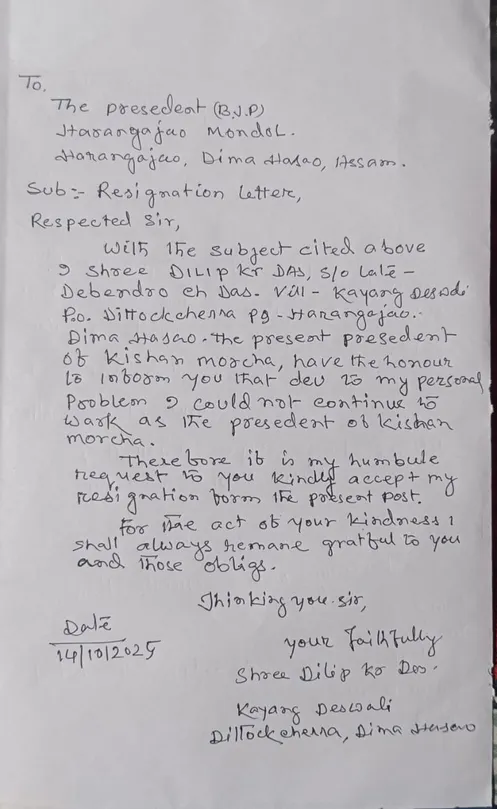 To,
The presedent (B.J.P)
Harangajao Mondol.
Harangajao, Dima Hasao, Assam.
Sub:- Resignation letter,
Respected Sir,
With the subject cited above
I shree DILIP Kr DAS, S/o Late -
Debendro ch Das. Vill - Kayang Deswali
P.o. Dittockcherra PS - Harangajao.
Dima Hasao. the present presedent
of Kishan morcha, have the honour
to inform you that deu to my personal
Problem I could not continue to
wark as the presedent of Kishan
morcha.
Therefore it is my humbule
request to you kindly accept my
resignation form the present post.
For the act of your kindness I
shall always remane gratful to you
and those obligs.
Thinking you. Sir,
Date
14/10/2025
your Faithfully
Shree Dilip Kr Das.
Kayang Deswali
Dittockcherra, Dima Hasao